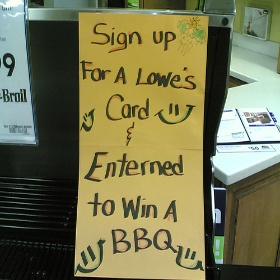 Sign up
For A Lowe's
Card
&
Enterned
to Win A
BBQ
9
Broil